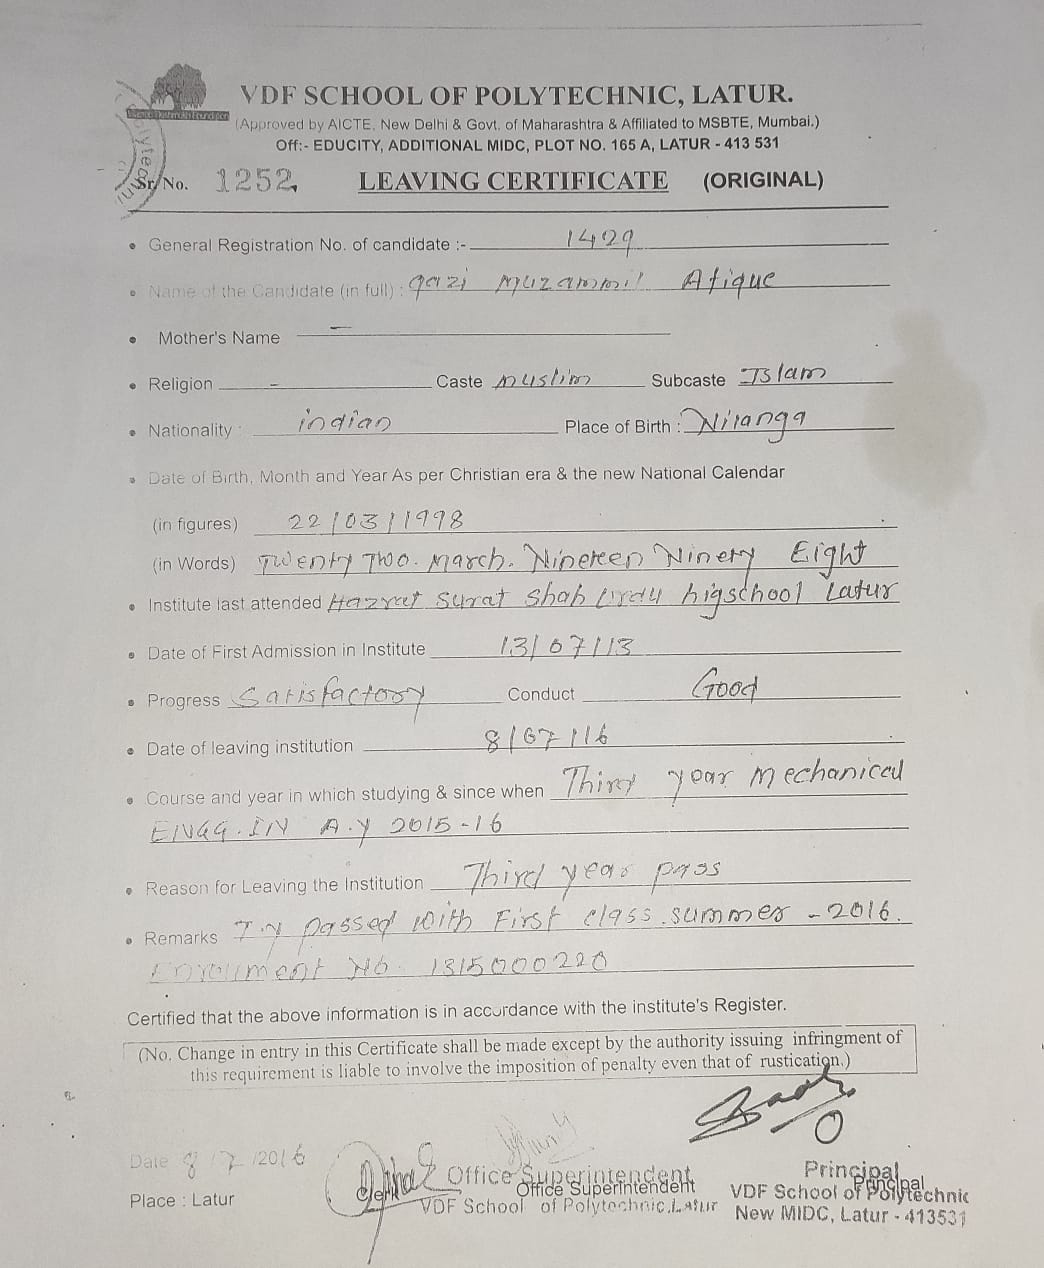 VDF SCHOOL OF POLYTECHNIC, LATUR.
(Approved by AICTE, New Delhi & Govt. of Maharashtra & Affiliated to MSBTE, Mumbai.)
Off:- EDUCITY, ADDITIONAL MIDC, PLOT NO. 165 A, LATUR - 413 531
Sr. No. 1252 LEAVING CERTIFICATE (ORIGINAL)
• General Registration No. of candidate :- 1429
• Name of the Candidate (in full) : qazi Muzammil Afique
• Mother's Name —
• Religion - Caste Muslim Subcaste Islam
• Nationality : indian Place of Birth : Nilanga
• Date of Birth, Month and Year As per Christian era & the new National Calendar
(in figures) 22/03/1998
(in Words) Twenty Two. March. Nineteen Ninety Eight
• Institute last attended Hazrat Surat Shah Urdu higschool Latur
• Date of First Admission in Institute 13/07/13
• Progress Satisfactory Conduct Good
• Date of leaving institution 8/07/16
• Course and year in which studying & since when Third year mechanical
ENGG. IN A.Y 2015-16
• Reason for Leaving the Institution Third year pass
• Remarks T.Y passed with First class summer - 2016.
Enrollment No. 1315000220
Certified that the above information is in accordance with the institute's Register.
(No. Change in entry in this Certificate shall be made except by the authority issuing infringment of
this requirement is liable to involve the imposition of penalty even that of rustication.)
Date 8/7/2016
Place : Latur
Clerk
Office Superintendent
Office Superintendent
VDF School of Polytechnic, Latur
Principal
Principal
VDF School of Polytechnic
New MIDC, Latur - 413531